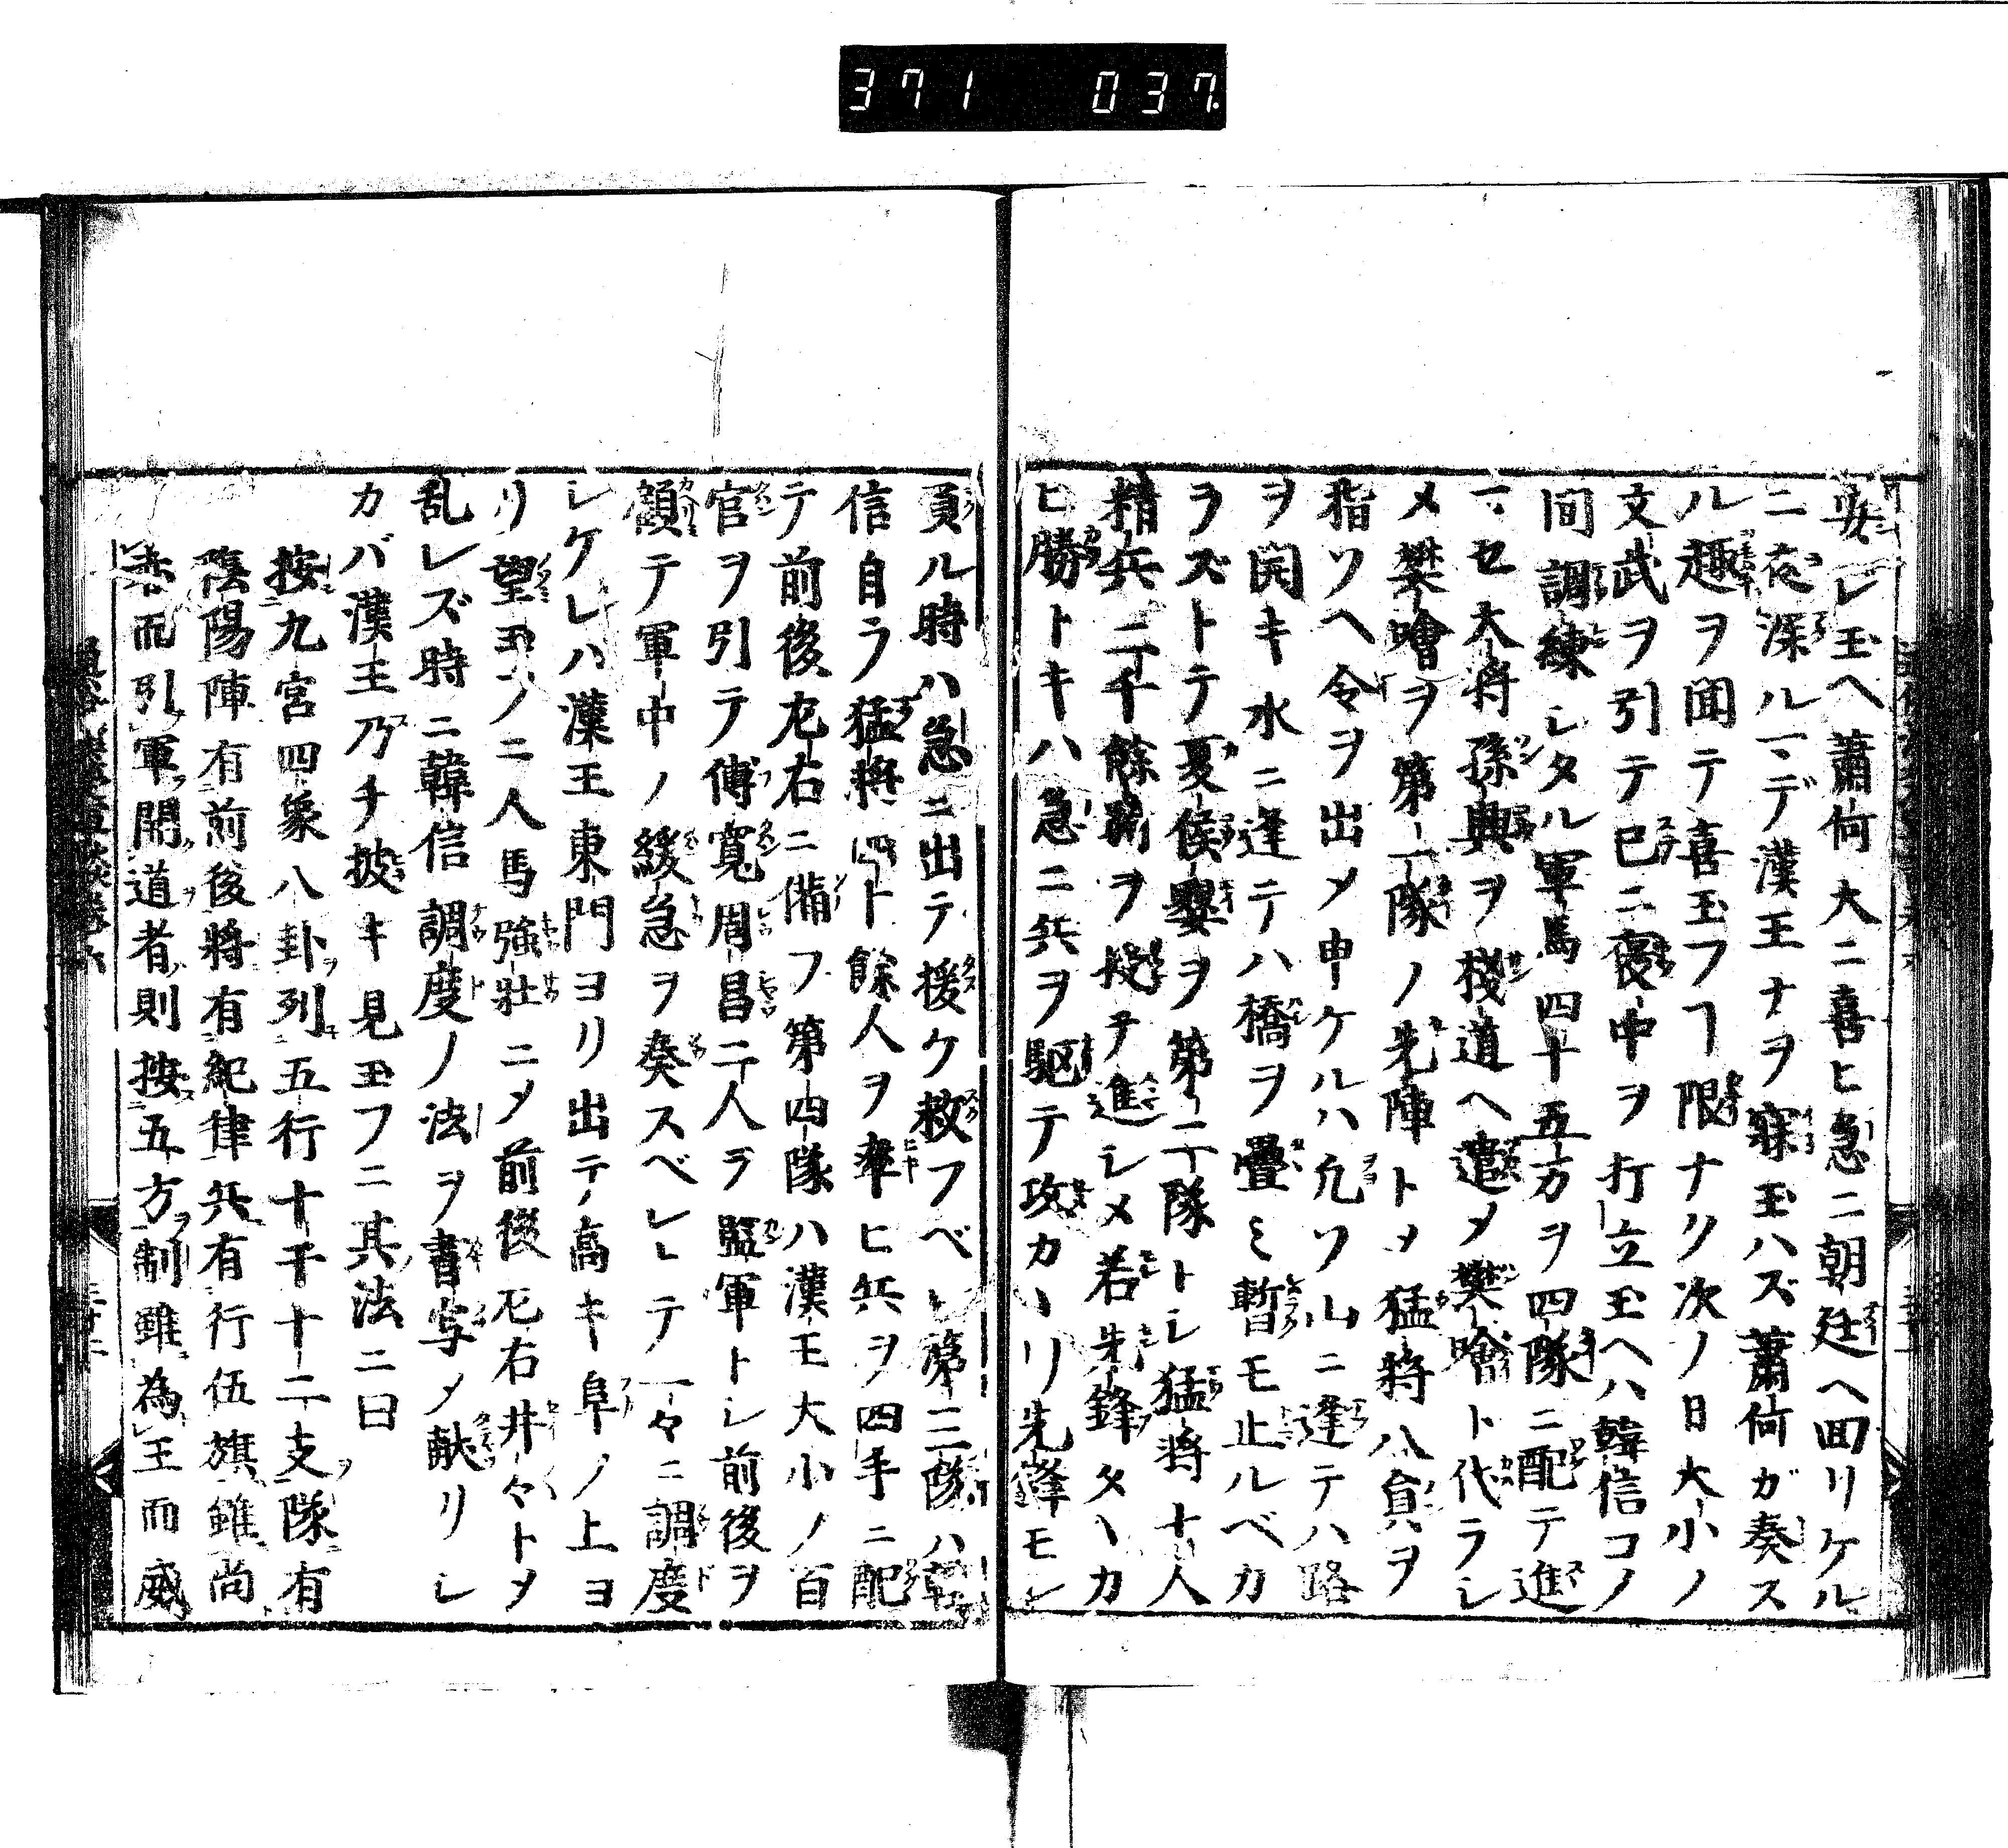 371 037
安シ玉ヘ蕭何大ニ喜ヒ急ニ朝廷ヘ回リケル
ニ夜深ルマデ漢王ナヲ寐玉ハズ蕭何ガ奏ス
ル趣ヲ聞テ喜玉フヿ限ナク次ノ日大小ノ
文武ヲ引テ已ニ褒中ヲ打立玉ヘハ韓信コノ
間調練シタル軍馬四十五万ヲ四隊ニ配テ進
マセ大将孫興ヲ棧道ヘ遣メ樊噲ト代ラシ
メ樊噲ヲ第一隊ノ先陣トメ猛将八員ヲ
指ソヘ令ヲ出メ申ケルハ凢ソ山ニ逢テハ路
ヲ開キ水ニ逢テハ橋ヲ疊ミ暫モ止ルベカ
ラズトテ夏侯嬰ヲ第二隊トシ猛将十人
精兵二千餘騎ヲ授テ進シメ若先鋒タヽカ
ヒ勝トキハ急ニ兵ヲ駆テ攻カヽリ先鋒モシ
負ル時ハ急ニ出テ援ケ救フベシ第三隊ハ韓
信自ラ猛将四十餘人ヲ率ヒ兵ヲ四手ニ配
テ前後左右ニ備フ第四隊ハ漢王大小ノ百
官ヲ引テ傅寬周昌二人ヲ監軍トシ前後ヲ
顧テ軍中ノ緩急ヲ奏スベシトテ一々ニ調度
シケレハ漢王東門ヨリ出テ高キ阜ノ上ヨ
リ望玉フニ人馬強壯ニメ前後左右井々トメ
乱レズ時ニ韓信調度ノ法ヲ書写メ献リシ
カバ漢王乃チ披キ見玉フニ其法ニ曰
按九宮四象八卦列五行十干十二支隊有
陰陽陣有前後將有紀律兵有行伍旗雖尚
赤而引軍開道者則按五方制雖為王而威